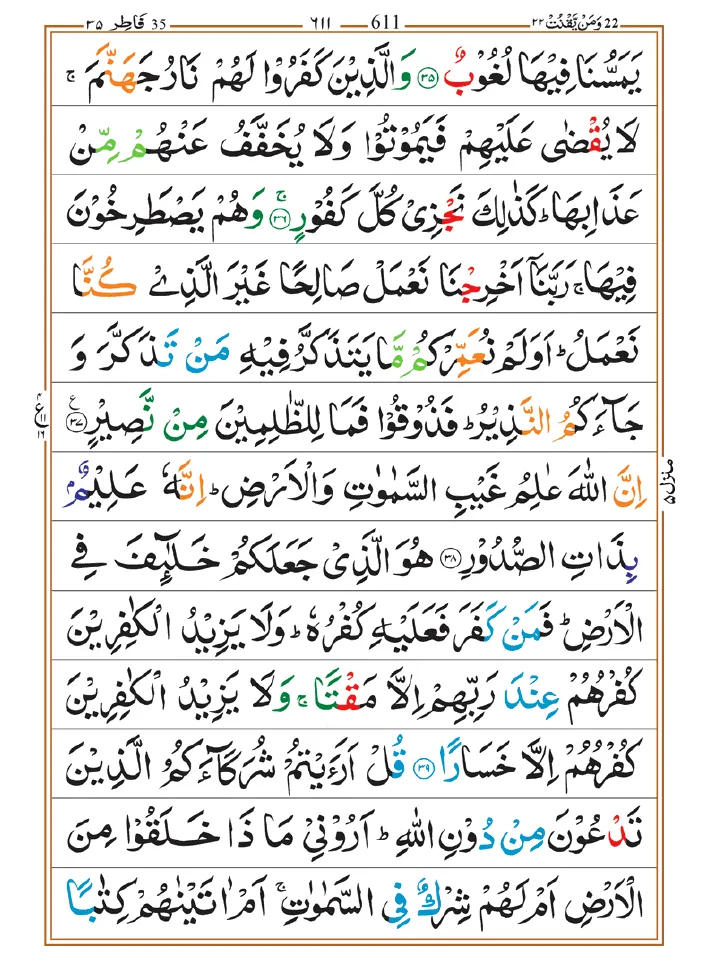 22 وَمَنْ يَّقْنُتْ ۲۲ 611 ٦١١ 35 فَاطِر ۳۵
يَمَسُّنَا فِيْهَا لُغُوْبٌ ۝۳۵ وَالَّذِيْنَ كَفَرُوْا لَهُمْ نَارُ جَهَنَّمَ ۚ
لَا يُقْضٰى عَلَيْهِمْ فَيَمُوْتُوْا وَلَا يُخَفَّفُ عَنْهُمْ مِّنْ
عَذَابِهَا ؕ كَذٰلِكَ نَجْزِىْ كُلَّ كَفُوْرٍ ۚ۝۳۶ وَهُمْ يَصْطَرِخُوْنَ
فِيْهَا ۚ رَبَّنَاۤ اَخْرِجْنَا نَعْمَلْ صَالِحًا غَيْرَ الَّذِىْ كُنَّا
نَعْمَلُ ؕ اَوَلَمْ نُعَمِّرْكُمْ مَّا يَتَذَكَّرُ فِيْهِ مَنْ تَذَكَّرَ وَ
جَآءَكُمُ النَّذِيْرُ ؕ فَذُوْقُوْا فَمَا لِلظّٰلِمِيْنَ مِنْ نَّصِيْرٍ ۝۳۷ ع
ع ۴ ١١ ١٦
اِنَّ اللّٰهَ عٰلِمُ غَيْبِ السَّمٰوٰتِ وَالْاَرْضِ ؕ اِنَّهٗ عَلِيْمٌۢ
منزل ۵
بِذَاتِ الصُّدُوْرِ ۝۳۸ هُوَ الَّذِىْ جَعَلَكُمْ خَلٰٓئِفَ فِى
الْاَرْضِ ؕ فَمَنْ كَفَرَ فَعَلَيْهِ كُفْرُهٗ ؕ وَلَا يَزِيْدُ الْكٰفِرِيْنَ
كُفْرُهُمْ عِنْدَ رَبِّهِمْ اِلَّا مَقْتًا ۚ وَلَا يَزِيْدُ الْكٰفِرِيْنَ
كُفْرُهُمْ اِلَّا خَسَارًا ۝۳۹ قُلْ اَرَءَيْتُمْ شُرَكَآءَكُمُ الَّذِيْنَ
تَدْعُوْنَ مِنْ دُوْنِ اللّٰهِ ؕ اَرُوْنِىْ مَا ذَا خَلَقُوْا مِنَ
الْاَرْضِ اَمْ لَهُمْ شِرْكٌ فِى السَّمٰوٰتِ ۚ اَمْ اٰتَيْنٰهُمْ كِتٰبًا